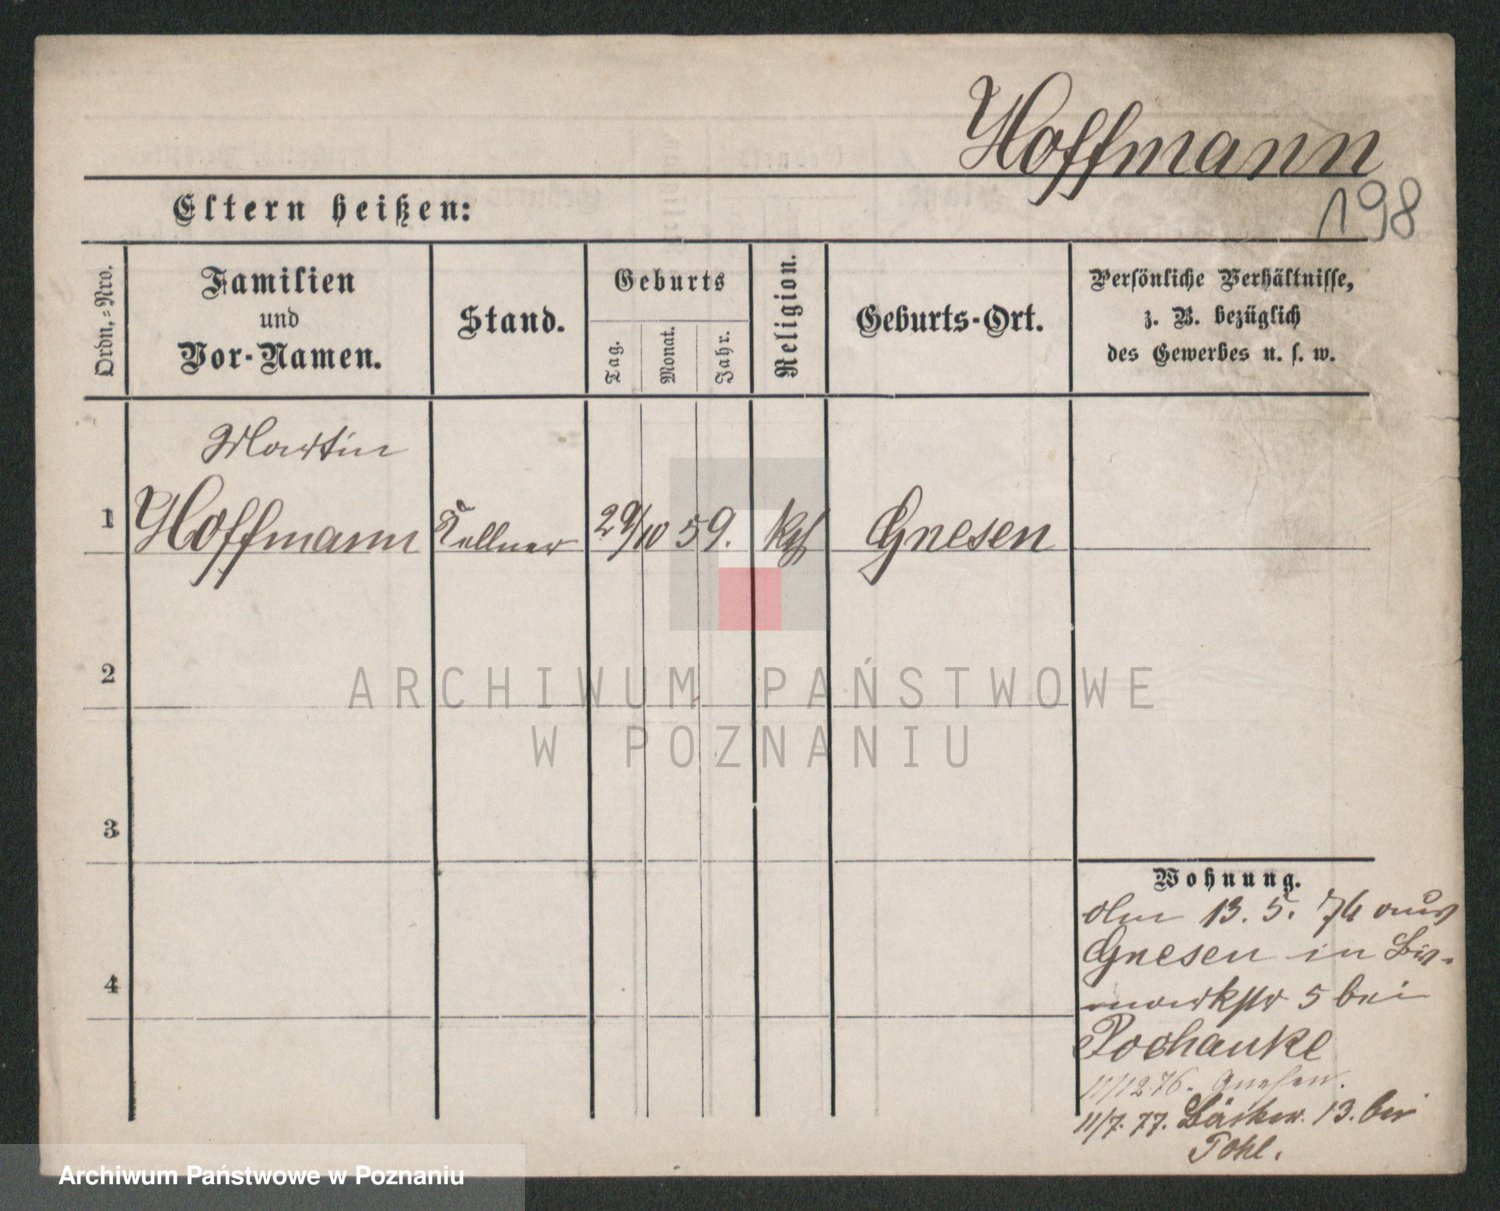 Hoffmann
198
Eltern heißen:
Ordn.-Nro.
Familien
und
Vor-Namen.
Stand.
Geburts
Tag.
Monat.
Jahr.
Religion.
Geburts-Ort.
Persönliche Verhältnisse,
z. B. bezüglich
des Gewerbes u. s. w.
Martin
1 Hoffmann Kellner 29/10 59. kth Gnesen
2
3
4
ARCHIWUM PAŃSTWOWE
W POZNANIU
Wohnung.
Am 13. 5. 76 aus
Gnesen in Bis-
markstr 5 bei
Pochanke
11/12 76. Gnesen.
11/7. 77. Bäcker. 13. bei
Pohl.
Archiwum Państwowe w Poznaniu